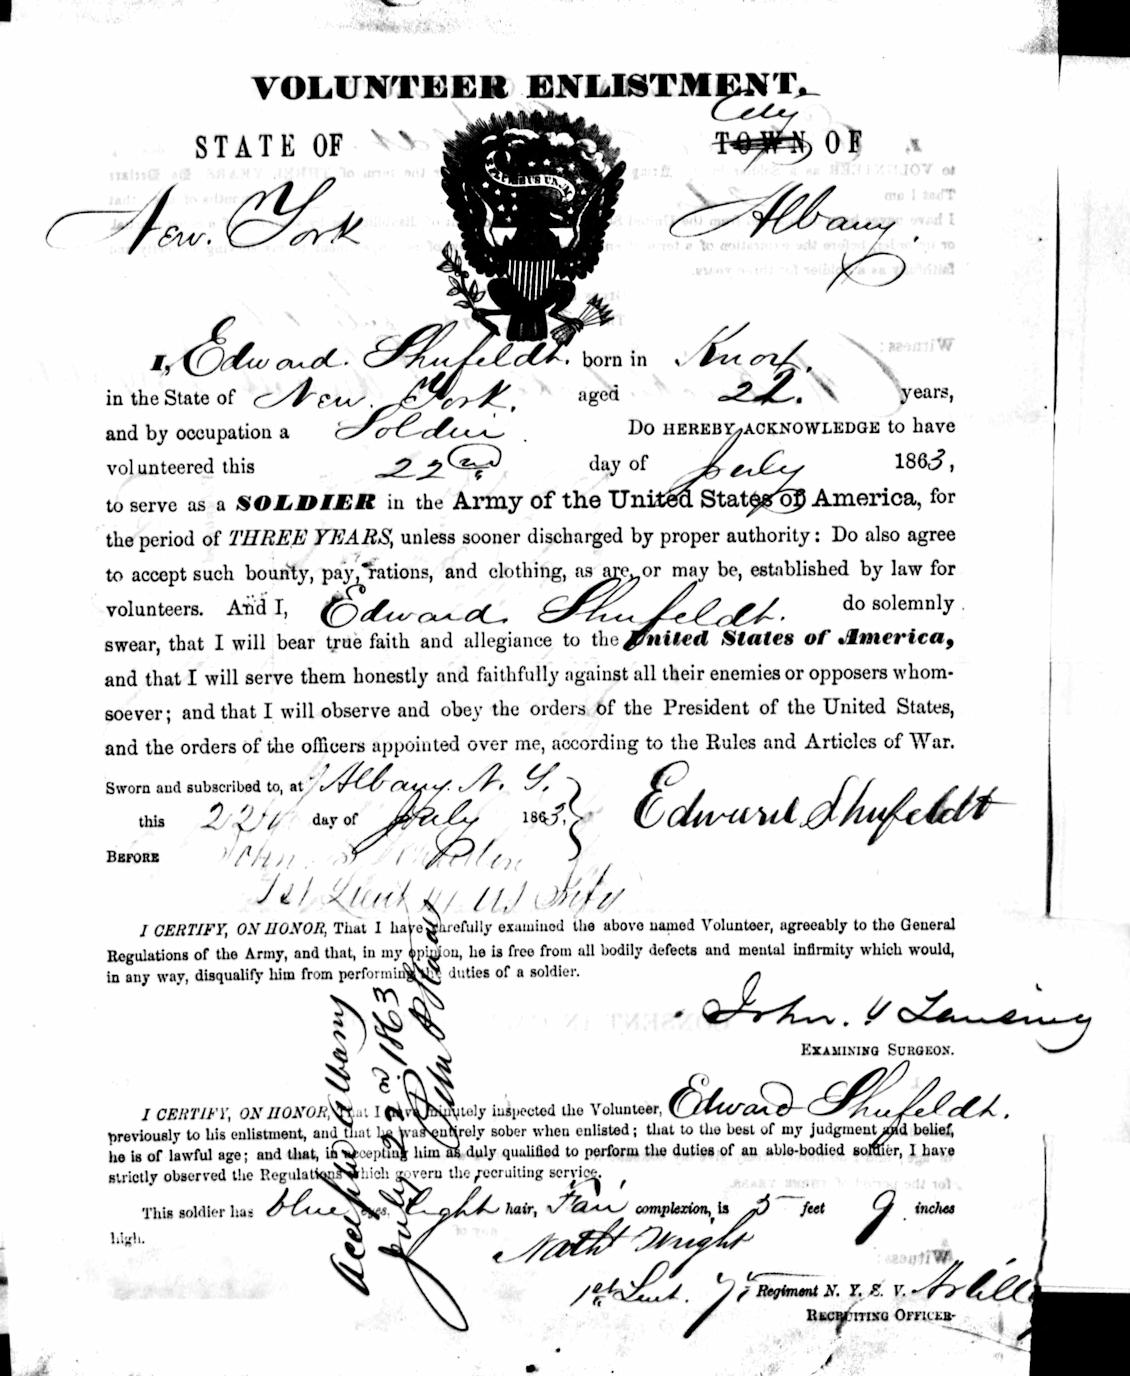 VOLUNTEER ENLISTMENT.
STATE OF
City
TOWN OF
New. York
Albany.
I, Edward. Shufeldt. born in Knox.
in the State of New. York. aged 22. years,
and by occupation a Soldier. DO HEREBY ACKNOWLEDGE to have
volunteered this 22nd day of July 1863,
to serve as a SOLDIER in the Army of the United States of America, for
the period of THREE YEARS, unless sooner discharged by proper authority: Do also agree
to accept such bounty, pay, rations, and clothing, as are, or may be, established by law for
volunteers. And I, Edward. Shufeldt. do solemnly
swear, that I will bear true faith and allegiance to the United States of America,
and that I will serve them honestly and faithfully against all their enemies or opposers whom-
soever; and that I will observe and obey the orders of the President of the United States,
and the orders of the officers appointed over me, according to the Rules and Articles of War.
Sworn and subscribed to, at Albany. N. Y.
this 22d day of July 1863.
Edward Shufeldt
BEFORE John
1st Lieut US
I CERTIFY, ON HONOR, That I have carefully examined the above named Volunteer, agreeably to the General
Regulations of the Army, and that, in my opinion, he is free from all bodily defects and mental infirmity which would,
in any way, disqualify him from performing the duties of a soldier.
John. V Lansing
EXAMINING SURGEON.
I CERTIFY, ON HONOR, That I have minutely inspected the Volunteer, Edward Shufeldt.
previously to his enlistment, and that he was entirely sober when enlisted; that to the best of my judgment and belief,
he is of lawful age; and that, in accepting him as duly qualified to perform the duties of an able-bodied soldier, I have
strictly observed the Regulations which govern the recruiting service.
This soldier has blue eyes, light hair, Fair complexion, is 5 feet 9 inches
high.
Nath Wright
1st Lieut. 7th Regiment N. Y. S. V. Artill
RECRUITING OFFICER.
Accepted Albany
July 22nd 1863
John